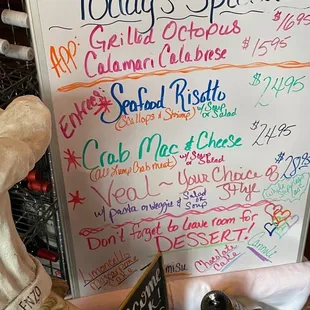 Today's Specials
APP: Grilled Octopus $16.95
Calamari Calabrese $15.95
Entrees
Seafood Risotto $24.95
(Scallops & Shrimp) w/ Soup or Salad
Crab Mac & Cheese $24.95
(All Lump Crab meat) w/ Soup or Salad
Veal ~ Your Choice of Style
w/ pasta or veggie & Salad or Soup
Don't forget to leave room for
DESSERT!
Limoncello
Chocolate Cake
Cannoli
ENZO